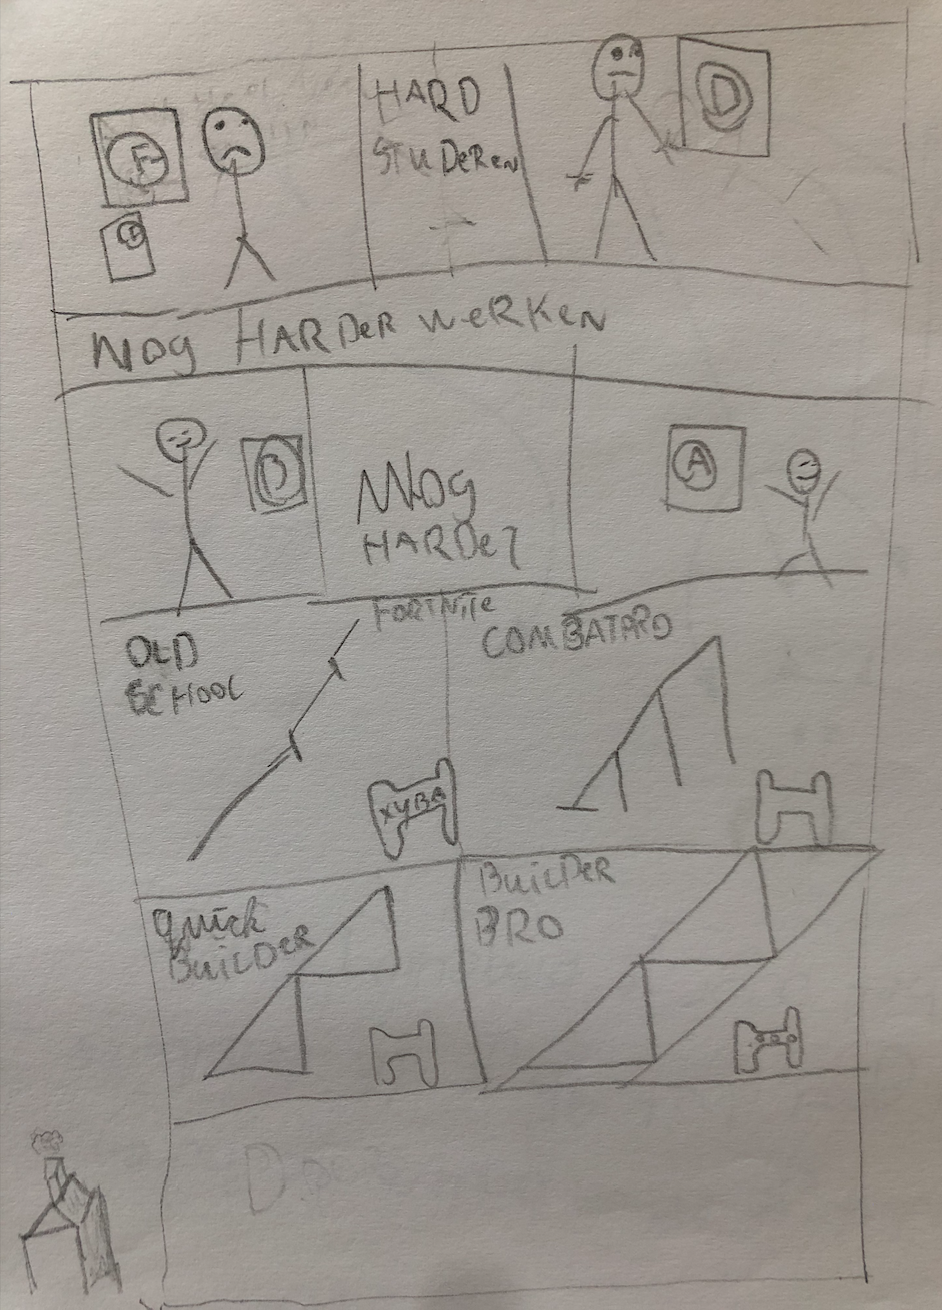 F
F
HARD
STUDEREN
D
NOG HARDER WERKEN
B
NOG
HARDER
A
OLD
SCHOOL
FORTNITE
XYBA
COMBATPRO
QUICK
BUILDER
BUILDER
BRO